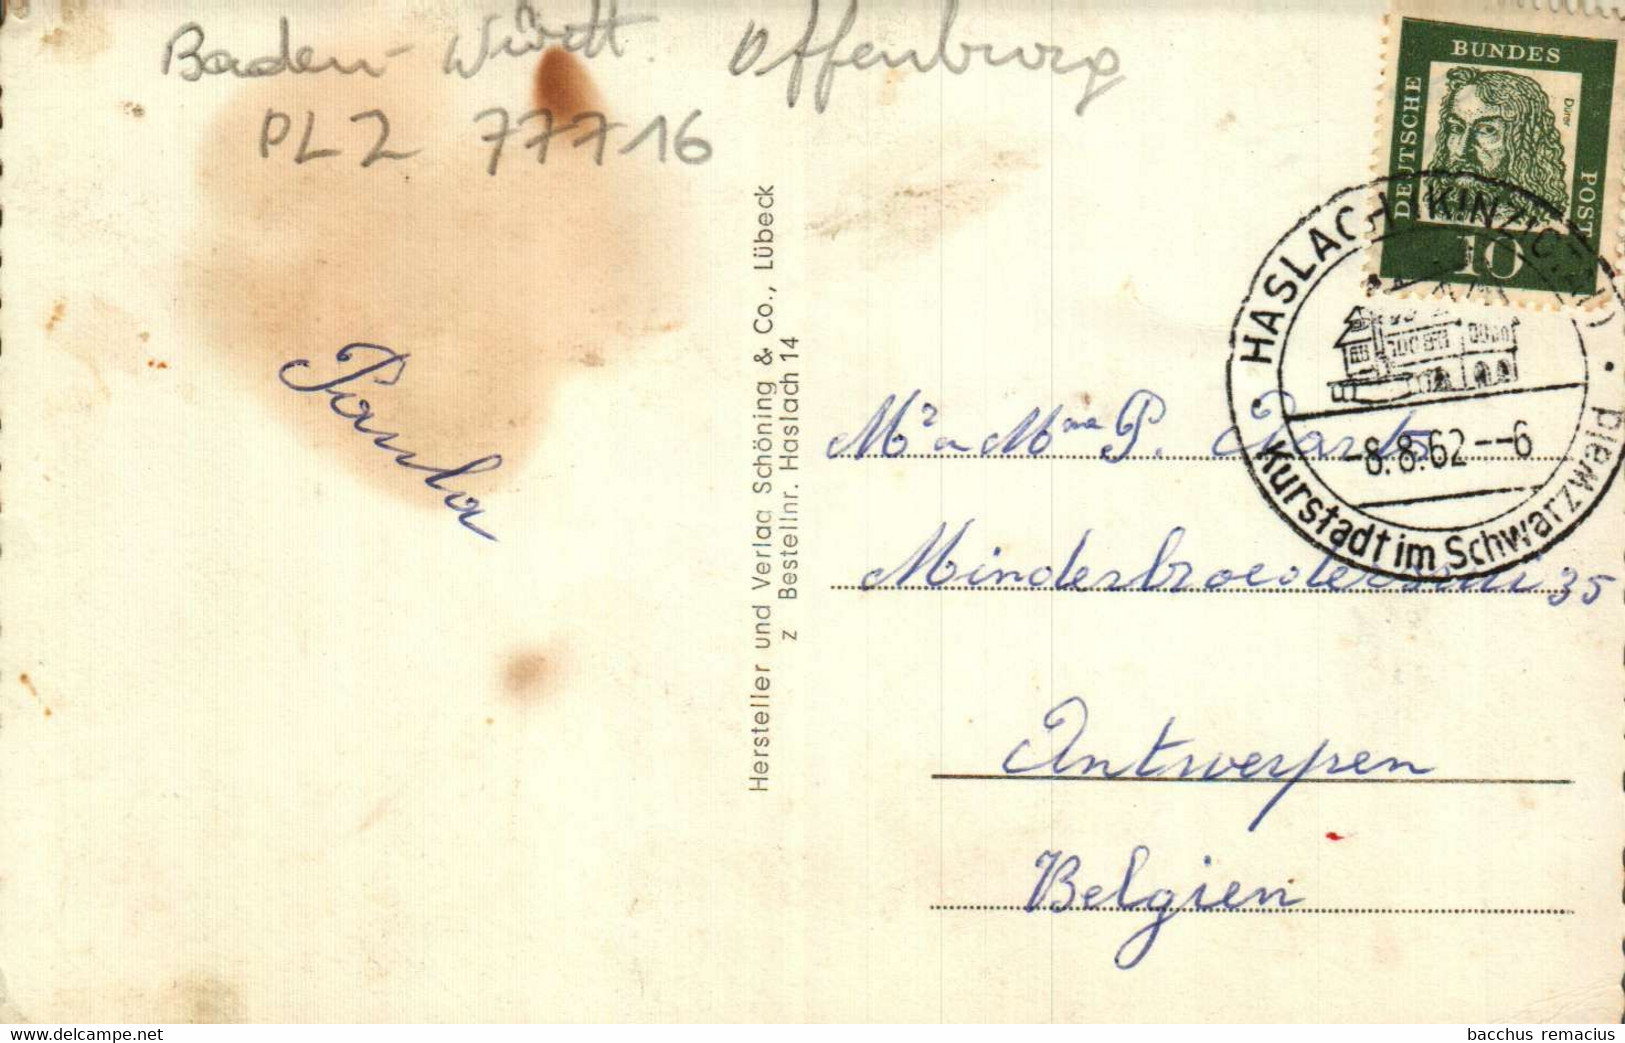 Baden-Württ. Offenburg
PLZ 77716
DEUTSCHE BUNDES POST
Dürer
10
HASLACH (KINZIGTAL)
-8.8.62--6
Kurstadt im Schwarzwald
Paula
Hersteller und Verlag Schöning & Co., Lübeck
z Bestellnr. Haslach 14
Mr Mme P.
35
Antwerpen
Belgien
bacchus remacius